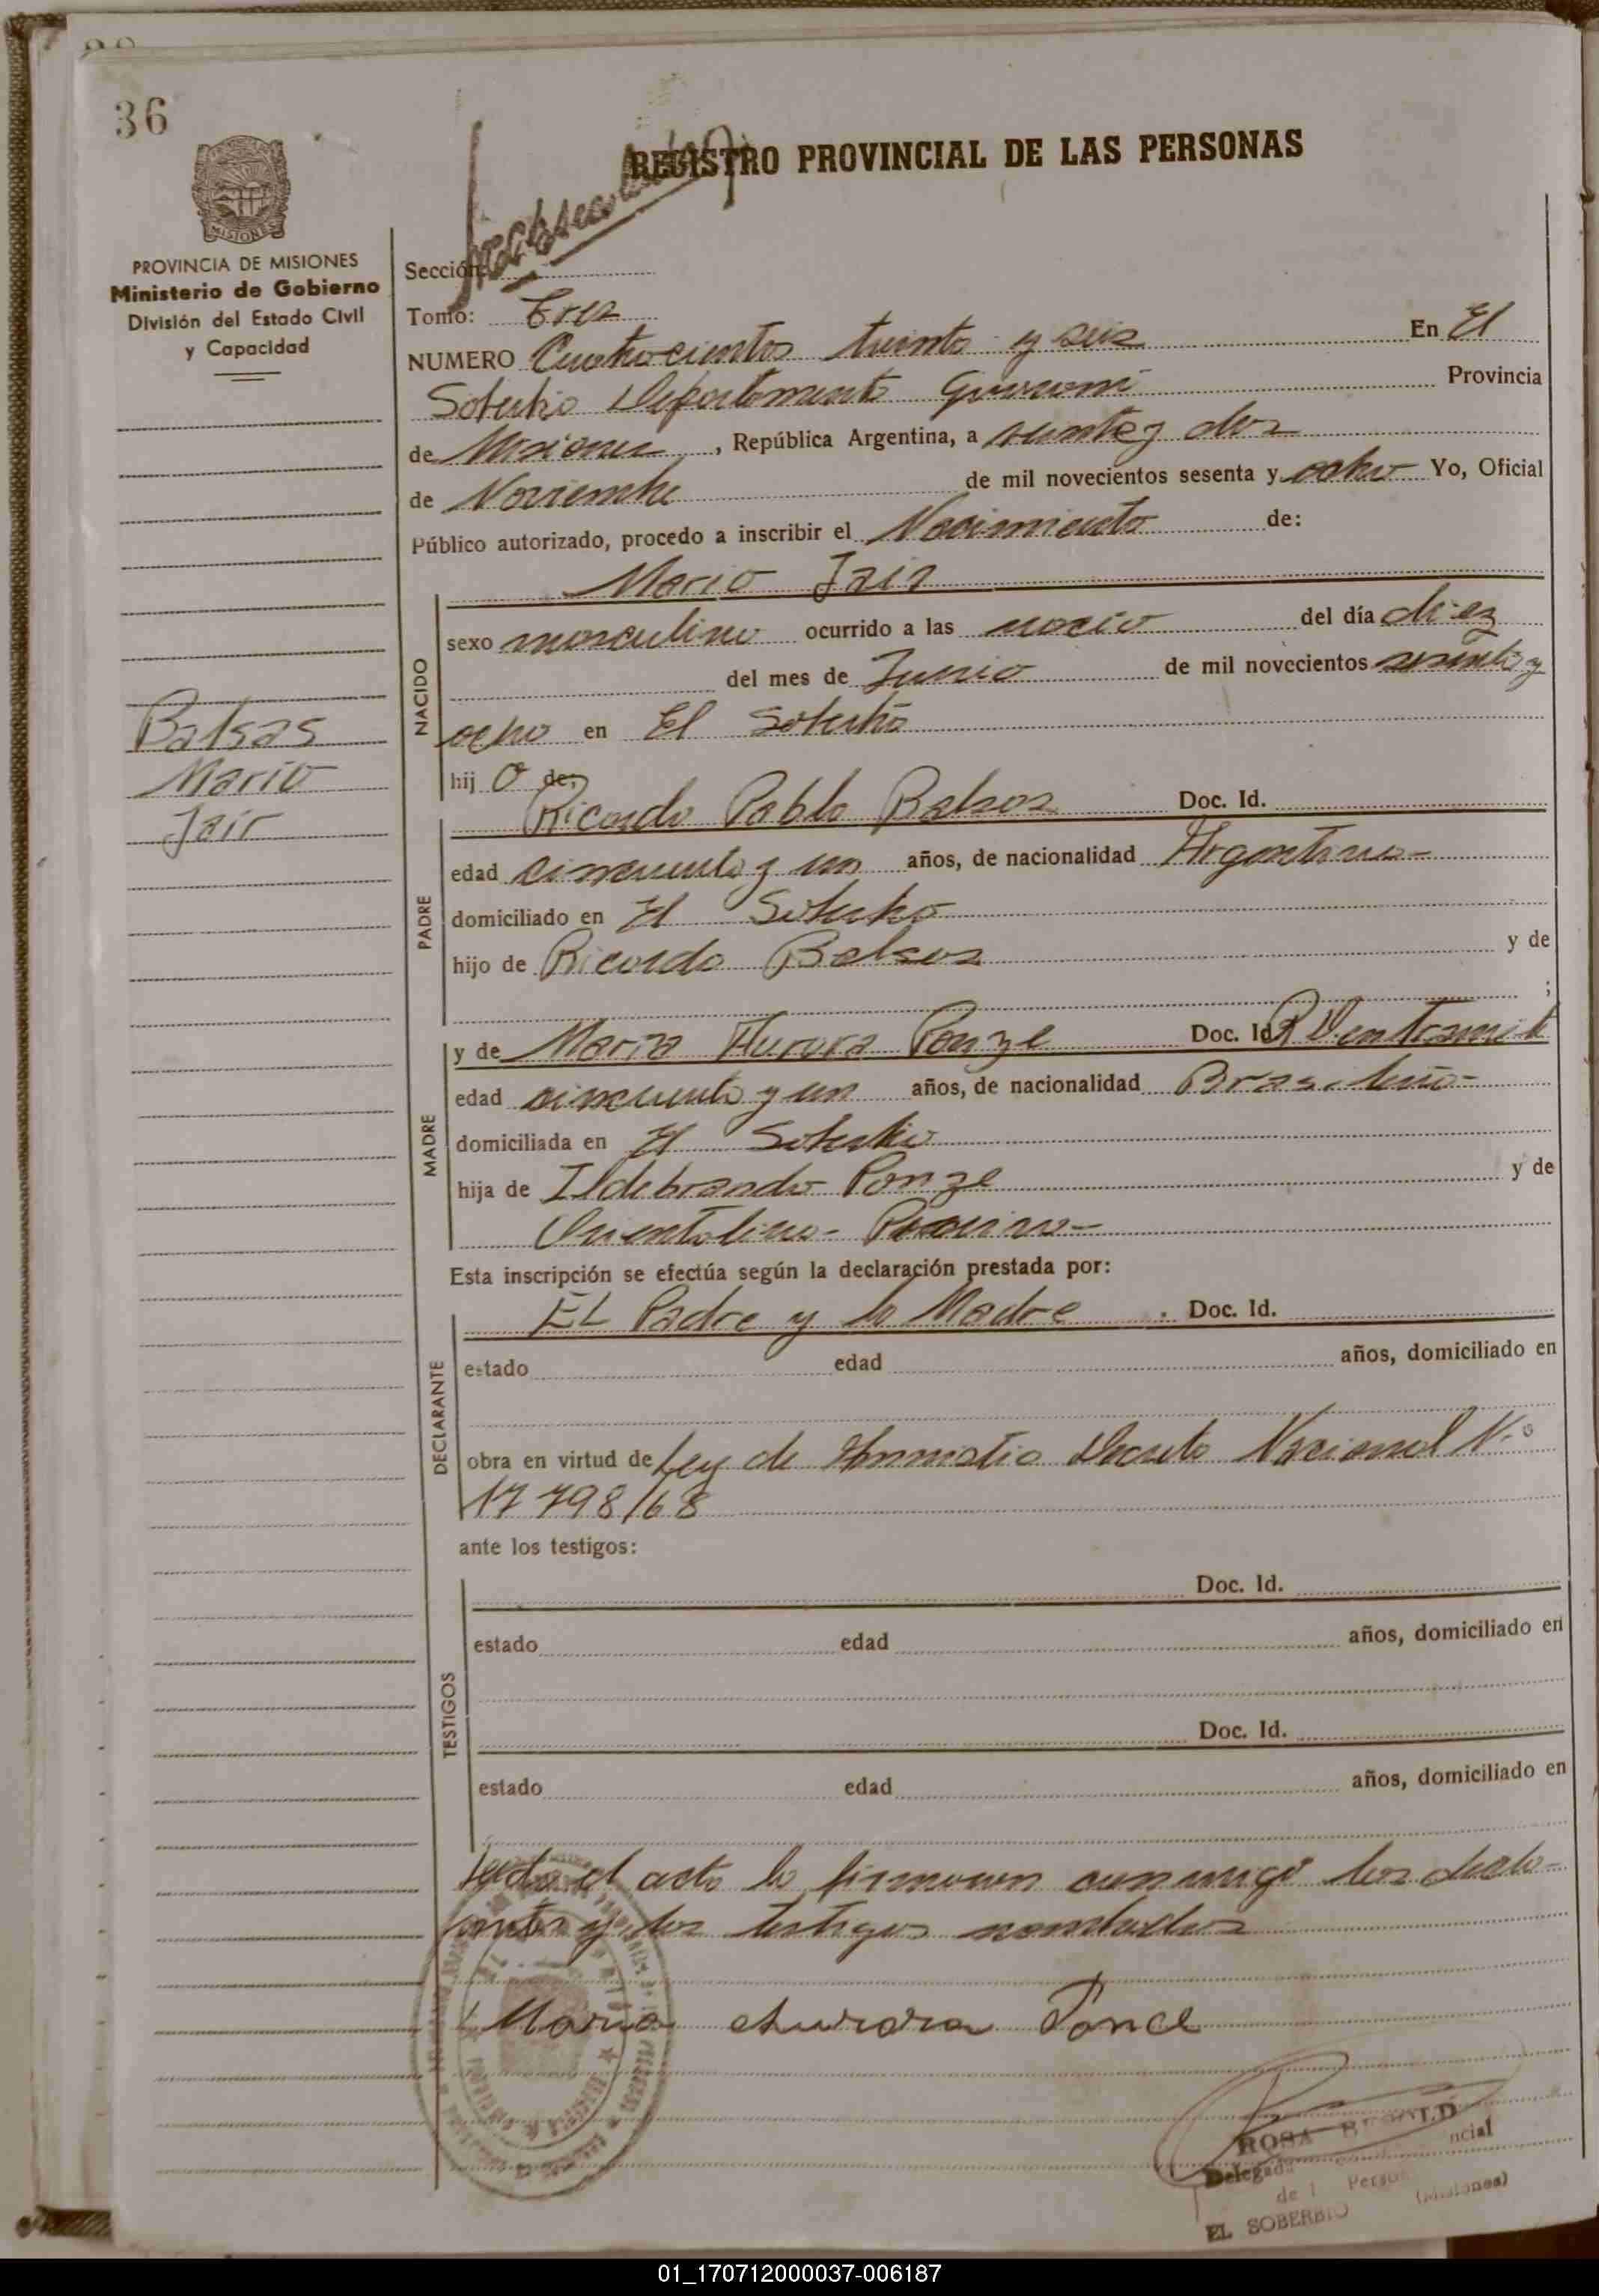 36
REGISTRO PROVINCIAL DE LAS PERSONAS
MISIONES
PROVINCIA DE MISIONES
Ministerio de Gobierno
División del Estado Civil
y Capacidad
Sección:
Tomo: Tres
NUMERO Cuatrocientos treinta y seis En El
Soberbio Departamento Guarani Provincia
de Misiones, República Argentina, a veinte y dos
de Noviembre de mil novecientos sesenta y ocho Yo, Oficial
Público autorizado, procedo a inscribir el Nacimiento de:
Mario Jair
NACIDO
sexo masculino ocurrido a las nacio del día diez
del mes de Junio de mil novecientos sesenta y
ocho en El Soberbio
hij o de:
Balsas
Mario
Jair
PADRE
Ricardo Pablo Balsas Doc. Id.
edad cincuenta y un años, de nacionalidad Argentina-
domiciliado en El Soberbio
hijo de Ricardo Balsas y de
;
MADRE
y de Maria Aurora Ponze Doc. Id.
edad cincuenta y un años, de nacionalidad Brasileña-
domiciliada en El Soberbio
hija de Ildebrando Ponze y de
Esta inscripción se efectúa según la declaración prestada por:
DECLARANTE
EL Padre y la Madre. Doc. Id.
estado edad años, domiciliado en
obra en virtud de Ley de Amnistia Decreto Nacional N.º
17798/68
ante los testigos:
TESTIGOS
Doc. Id.
estado edad años, domiciliado en
Doc. Id.
estado edad años, domiciliado en
Leida el acta la firmaron conmigo los decla-
rantes y los testigos nombrados
Maria Aurora Ponce
ROSA
Delegada
EL SOBERBIO (Misiones)
01_170712000037-006187